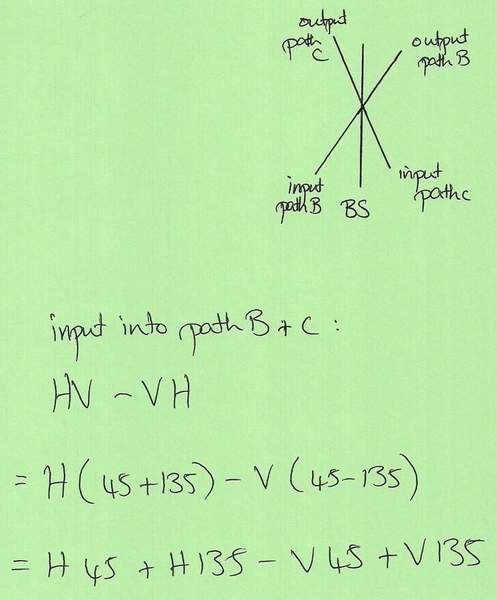 output
path
C
output
path B
input
path B
BS
input
path C
input into path B + C :
HV - VH
= H (45 + 135) - V (45 - 135)
= H 45 + H 135 - V 45 + V 135